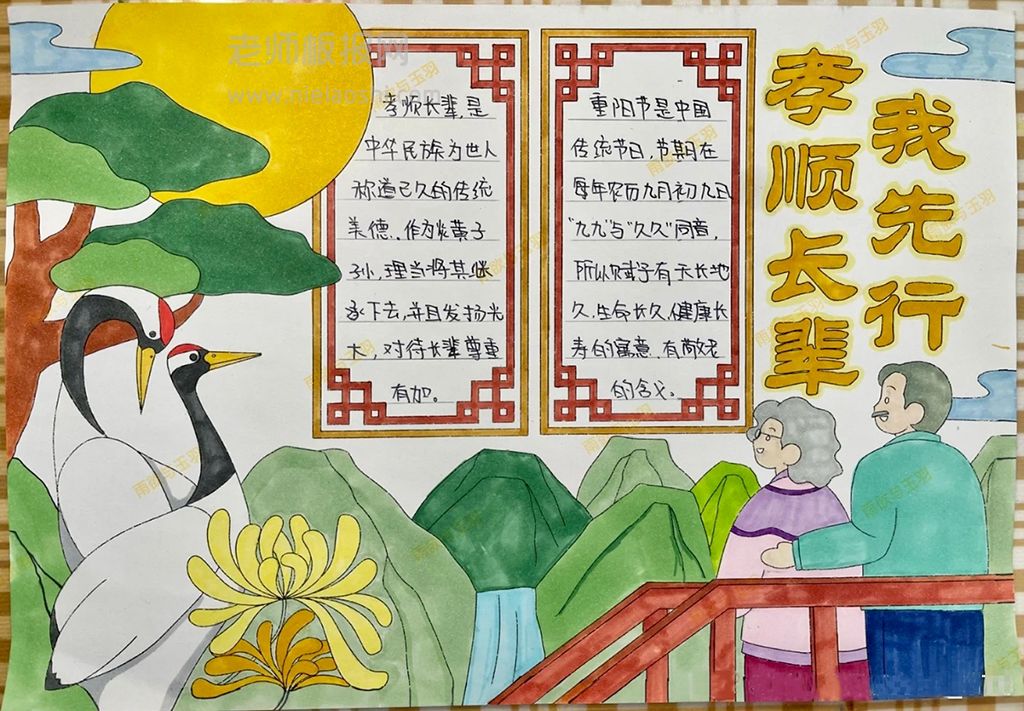 孝顺长辈
我先行
孝顺长辈,是
中华民族为世人
称道已久的传统
美德.作为炎黄子
孙,理当将其继
承下去,并且发扬光
大,对待长辈尊重
有加。
重阳节是中国
传统节日,节期在
每年农历九月初九日
"九九"与"久久"同音,
所以赋予有天长地
久.生命长久.健康长
寿的寓意.有敬老
的含义。
老师板报网
www.nielaoshi.com
雨歌与玉羽